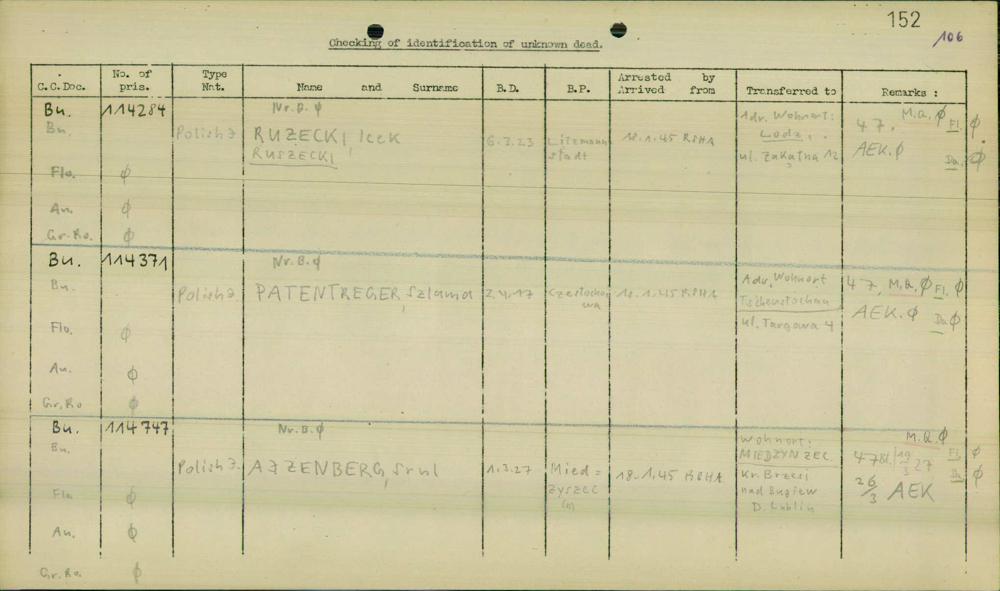 152
106
Checking of identification of unknown dead.
C.C.Doc. No. of pris. Type Nat. Name and Surname B.D. B.P. Arrested by Arrived from Transferred to Remarks :
Bu. 114284 Nr.B. ϕ Adr. Wohnort: 47. M.Q. ϕ Fl. ϕ
Bu. Polish J. RUZECKI, Icek 6.3.23 Litzmann 18.1.45 RSHA Lodz,
RUSZECKI stadt ul. Zakątna 12 AEK. ϕ Da. ϕ
Flo. ϕ
An. ϕ
Gr.Ro. ϕ
Bu. 114371 Nr.B. ϕ
Bu. Polish J. PATENTREGER, Szlama 2.4.17 Częstocho 18.1.45 RSHA Adr. Wohnort 47, M.Q. ϕ Fl. ϕ
wa Tschenstochau AEK. ϕ Da ϕ
Flo. ϕ ul. Targowa 4
An. ϕ
Gr.Ro ϕ
Bu. 114747 Nr.B. ϕ M.Q. ϕ
Bu. Wohnort: Fl. ϕ
Polish J. AJZENBERG, Srul 1.3.27 Mied= 18.1.45 RSHA MIEDZYNZEC 47 19/3 27 Da ϕ
zyszec Kr. Brzesi 26/3 AEK
Flo ϕ nad Bugiem
An. ϕ D. Lublin
Gr.Ro. ϕ